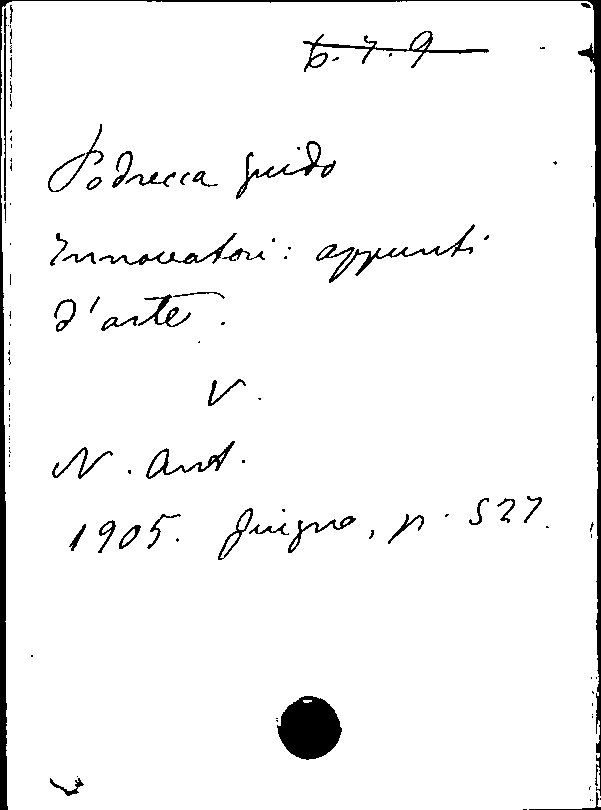 6.7.9
Podrecca Guido
Innovatori: appunti
d'arte.
V.
N. Ant.
1905. Giugno, p. 527.